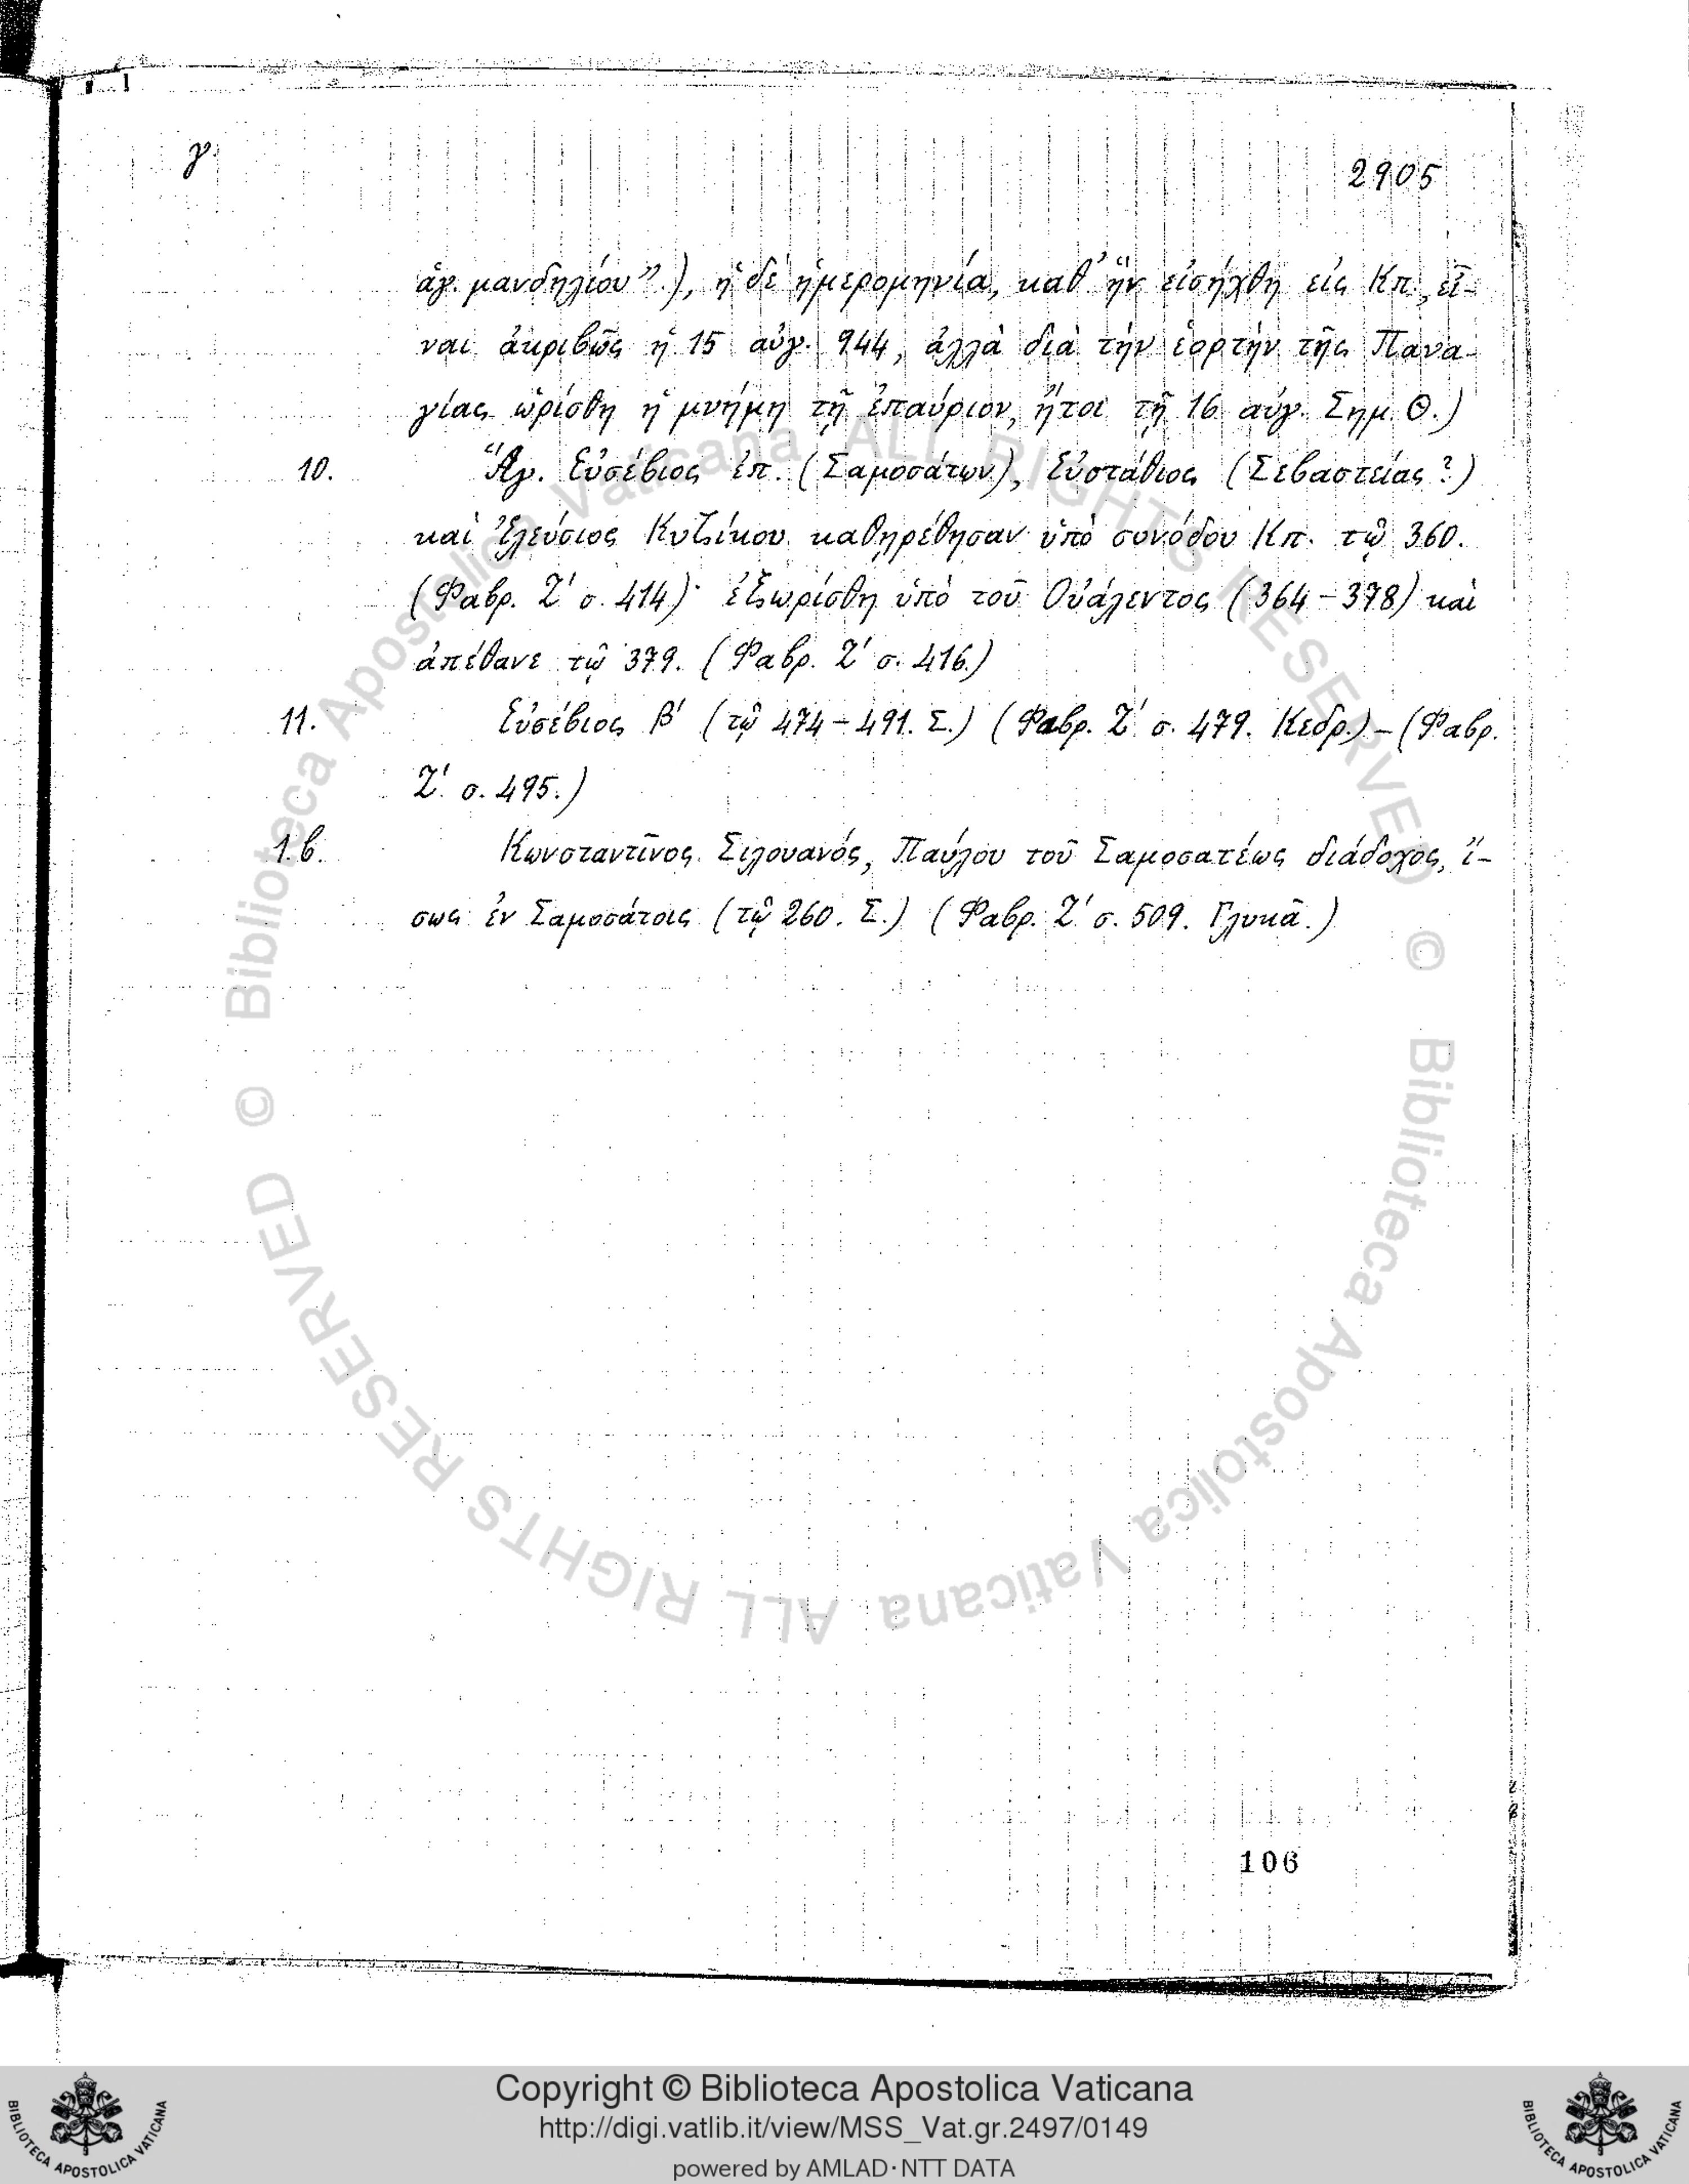 γ.
2905
ἁγ. μανδηλίου".), ἡ δὲ ἡμερομηνία, καθ' ἣν εἰσήχθη εἰς Κπ., εἶ-
ναι ἀκριβῶς ἡ 15 αὐγ. 944, ἀλλὰ διὰ τὴν ἑορτὴν τῆς Πανα-
γίας ὡρίσθη ἡ μνήμη τῇ ἐπαύριον, ἤτοι τῇ 16 αὐγ. Σημ. Θ.)
10. Ἅγ. Εὐσέβιος ἐπ. (Σαμοσάτων), Εὐστάθιος (Σεβαστείας?)
καὶ Ἐλεύσιος Κυζίκου καθῃρέθησαν ὑπὸ συνόδου Κπ. τῷ 360.
(Φαβρ. Ζ' σ. 414)· ἐξωρίσθη ὑπὸ τοῦ Οὐάλεντος (364-378) καὶ
ἀπέθανε τῷ 379. (Φαβρ. Ζ' σ. 416.)
11. Εὐσέβιος β' (τῷ 474-491. Σ.) (Φαβρ. Ζ' σ. 479. Κεδρ.) - (Φαβρ.
Ζ' σ. 495.)
1.β. Κωνσταντῖνος Σιλουανός, Παύλου τοῦ Σαμοσατέως διάδοχος, ἴ-
σως ἐν Σαμοσάτοις (τῷ 260. Σ.) (Φαβρ. Ζ' σ. 509. Γλυκᾶ.)
106
© Biblioteca Apostolica Vaticana ALL RIGHTS RESERVED
© Biblioteca Apostolica Vaticana ALL RIGHTS RESERVED
Copyright © Biblioteca Apostolica Vaticana
http://digi.vatlib.it/view/MSS_Vat.gr.2497/0149
powered by AMLAD·NTT DATA
BIBLIOTECA APOSTOLICA VATICANA
BIBLIOTECA APOSTOLICA VATICANA